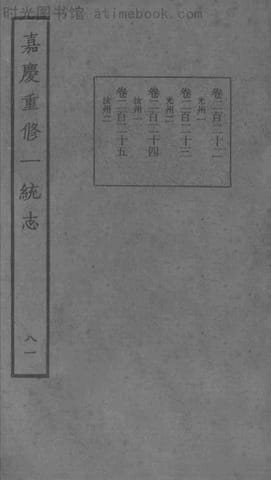 时光图书馆 atimebook.com
嘉慶重修一統志
八一
卷二百二十二
光州一
卷二百二十三
光州二
卷二百二十四
汝州一
卷二百二十五
汝州二